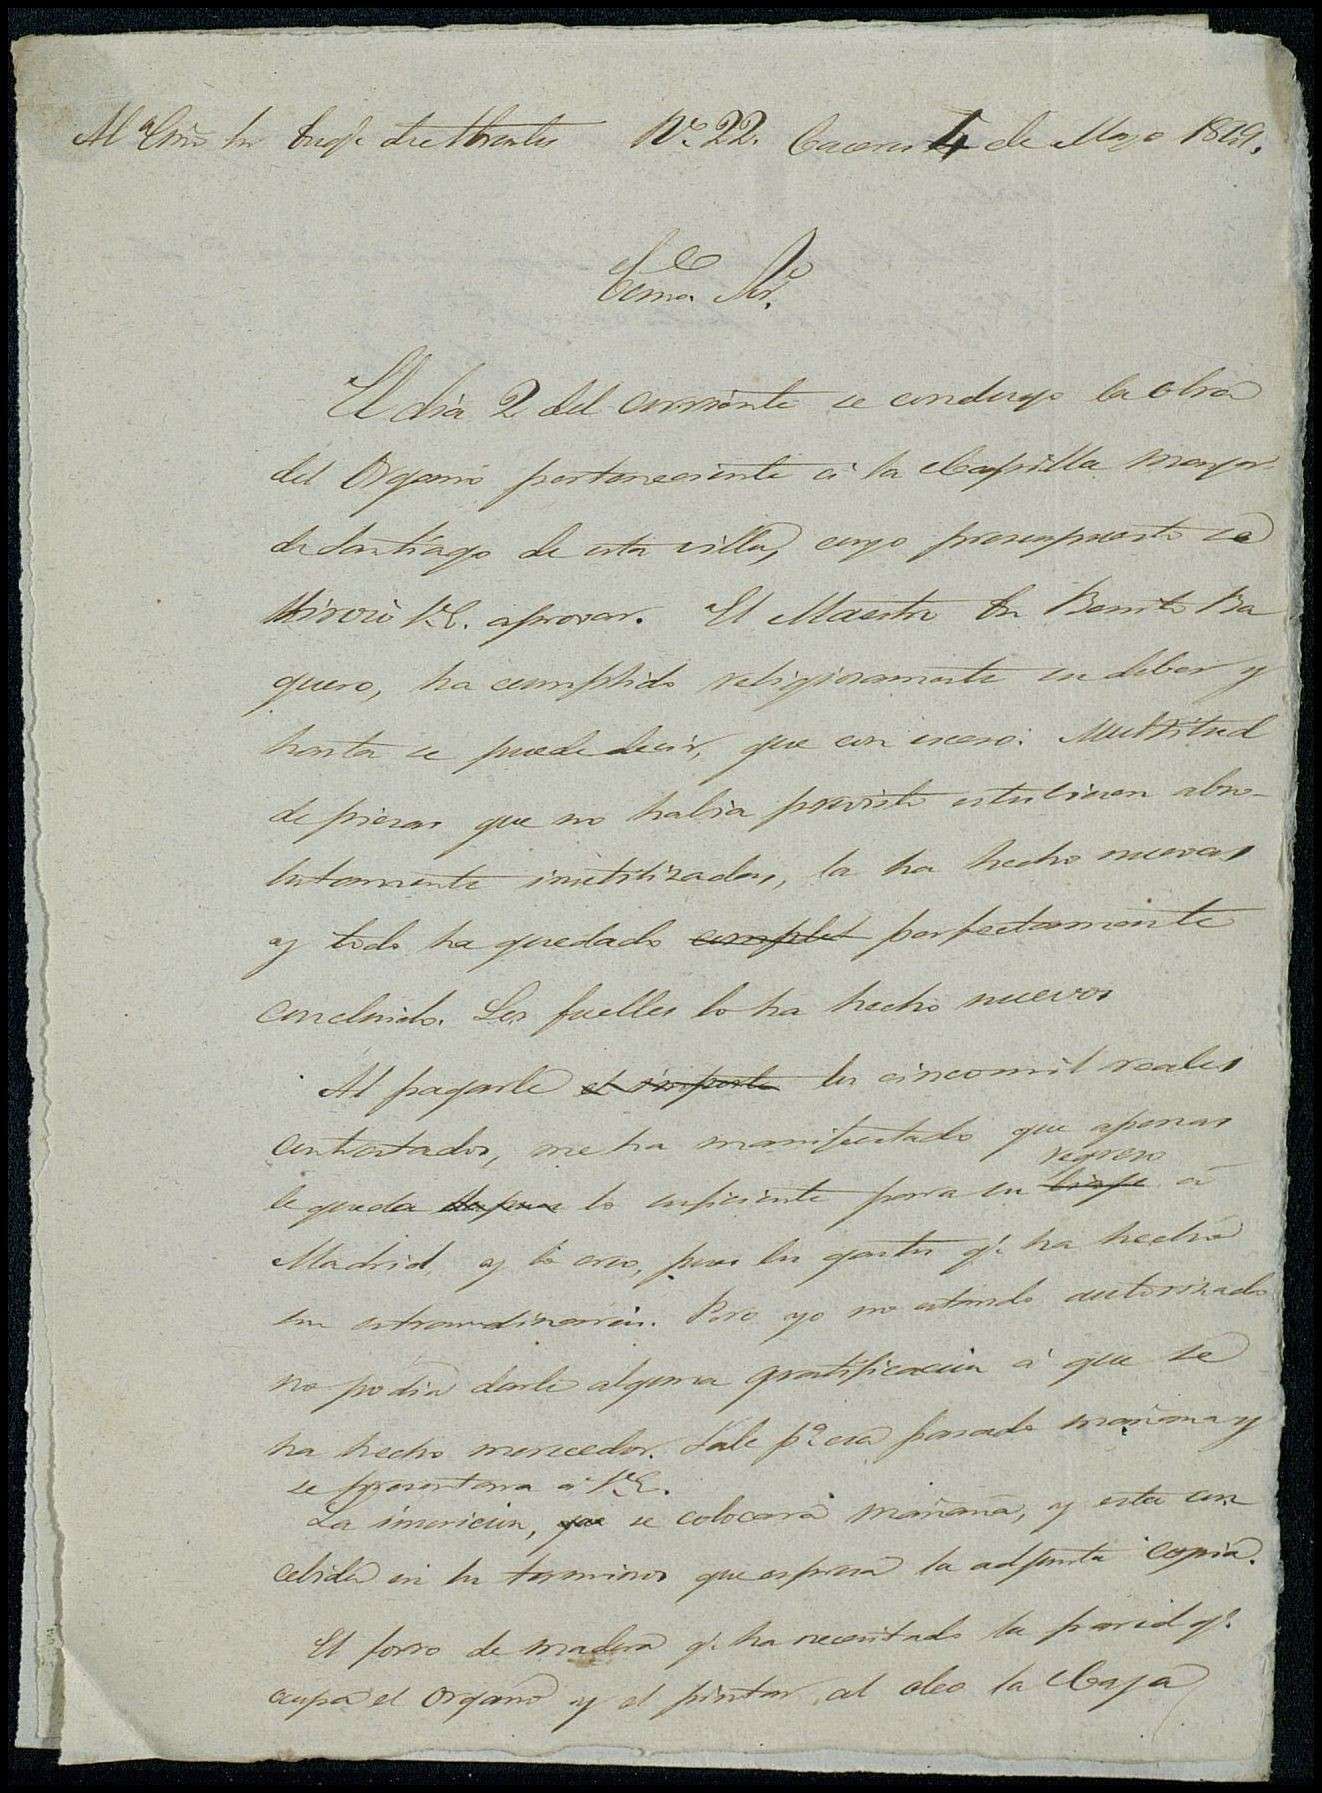 Al Exmo Sr Duque de Abrantes Nº 22. Caceres 4 de Mayo 1849.
Exmo. Sor.
El dia 2 del corriente se concluyo la obra
del Organo perteneciente á la Capilla mayor
de Santiago de esta villa, cuyo presupuesto se
sirvió V.E. aprovar. El Maestro Dn Benito Ba
quero, ha cumplido religiosamente su deber y
hasta se puede decir, que con esceso: Multitud
de piezas que no habia previsto estubiesen abso-
lutamente inutilizadas, la ha hecho nuevas
y todo ha quedado complet perfectamente
concluido. Los fuelles lo ha hecho nuevos
Al pagarle el importe los cinco mil reales
contratados, me ha manifestado que apenas
regreso
le queda lo suficiente para su biaje á
Madrid, y lo creo, pues los gastos q.e ha hecho
son extraordinarios. Pero yo no estando autorizado
no podia darle alguna gratificacion á que se
ha hecho merecedor. Sale pª esa pasado mañana y
se presentara á V.E.
La inscricion, que se colocará mañana, y esta con
cebida en los terminos que espresa la adjunta copia.
El forro de madera q.e ha necesitado la pared q.e
ocupa el Organo y el pintar al oleo la Caja